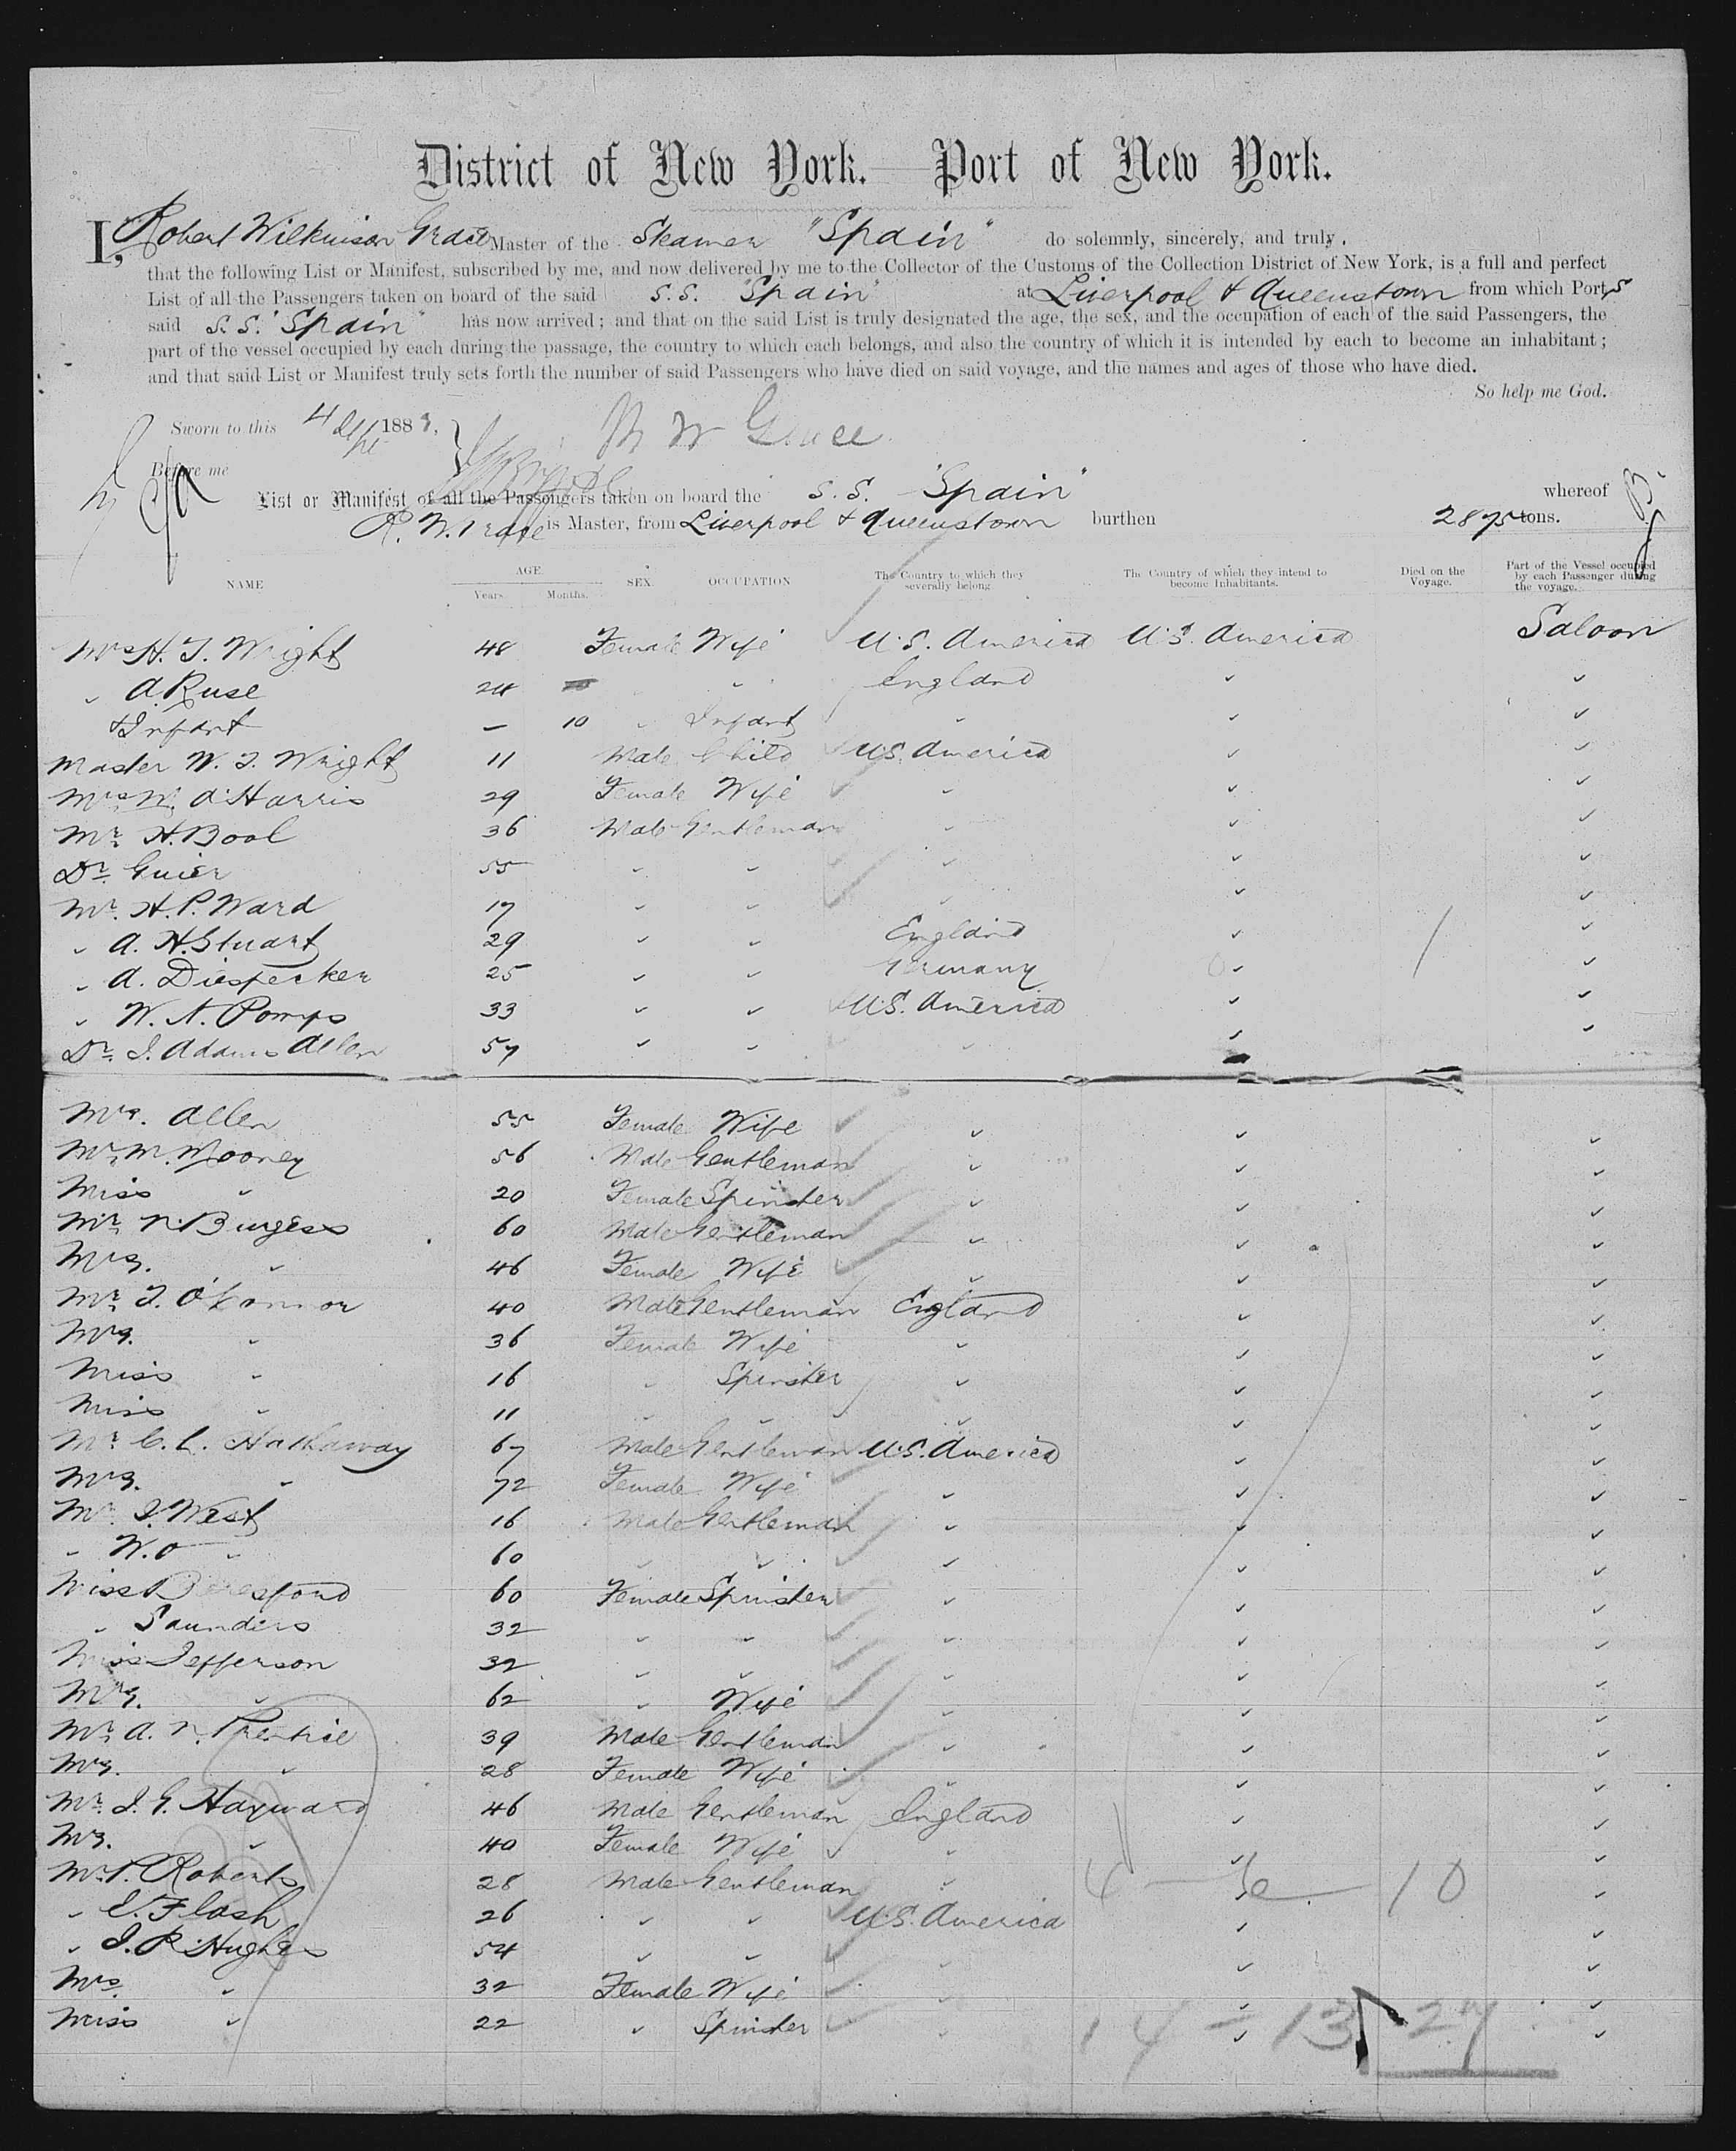 District of New York.—Port of New York.
I, Robert Wilkinson Grace Master of the Steamer "Spain" do solemnly, sincerely, and truly,
that the following List or Manifest, subscribed by me, and now delivered by me to the Collector of the Customs of the Collection District of New York, is a full and perfect
List of all the Passengers taken on board of the said S.S. "Spain" at Liverpool & Queenstown from which Ports
said S.S. "Spain" has now arrived; and that on the said List is truly designated the age, the sex, and the occupation of each of the said Passengers, the
part of the vessel occupied by each during the passage, the country to which each belongs, and also the country of which it is intended by each to become an inhabitant;
and that said List or Manifest truly sets forth the number of said Passengers who have died on said voyage, and the names and ages of those who have died.
So help me God.
Sworn to this 4 Sept 1883, R W Grace
Before me
List or Manifest of all the Passengers taken on board the S.S. "Spain" whereof
R. W. Grace is Master, from Liverpool & Queenstown burthen 2875 tons.
NAME AGE. Years. Months. SEX. OCCUPATION The Country to which they severally belong. The Country of which they intend to become Inhabitants. Died on the Voyage. Part of the Vessel occupied by each Passenger during the voyage.
Mrs H. T. Wright 48 Female Wife U.S. America U.S. America Saloon
" A. Ruse 24 " " England " "
& Infant — 10 " Infant " " "
Master W. T. Wright 11 Male Child U.S. America " "
Mrs W. A. Harris 29 Female Wife " " "
Mr H. Bool 36 Male Gentleman " " "
Dr. Guier 55 " " " " "
Mr. H. P. Ward 17 " " " " "
" A. H. Stuart 29 " " England " "
" A. Diespecker 25 " " Germany " "
" W. N. 33 " " U.S. America " "
Dr. J. Adams Allen 57 " " " " "
Mrs. Allen 55 Female Wife " " "
Mr. M. Mooney 56 Male Gentleman " " "
Miss " 20 Female Spinster " " "
Mr. N. Burgess 60 Male Gentleman " " "
Mrs. " 46 Female Wife " " "
Mr. T. O'Connor 40 Male Gentleman England " "
Mrs. " 36 Female Wife " " "
Miss " 16 " Spinster " " "
Miss " 11 " " " " "
Mr. C. L. Hathaway 67 Male Gentleman U.S. America " "
Mrs. " 72 Female Wife " " "
Mr. J. West 16 Male Gentleman " " "
" W. O. " 60 " " " " "
Miss Beresford 60 Female Spinster " " "
" Saunders 32 " " " " "
Miss Jefferson 32 " " " " "
Mrs. " 62 " Wife " " "
Mr. A. N. Prentice 39 Male Gentleman " " "
Mrs. " 28 Female Wife " " "
Mr. J. G. Hayward 46 Male Gentleman England " "
Mrs. " 40 Female Wife " " "
Mr. P. Roberts 28 Male Gentleman " " "
" E. Flash 26 " " U.S. America " "
" J. R. Hughes 54 " " " " "
Mrs. " 32 Female Wife " " "
Miss " 22 " Spinster " " "
4 — 6 — 10
14 — 13 27